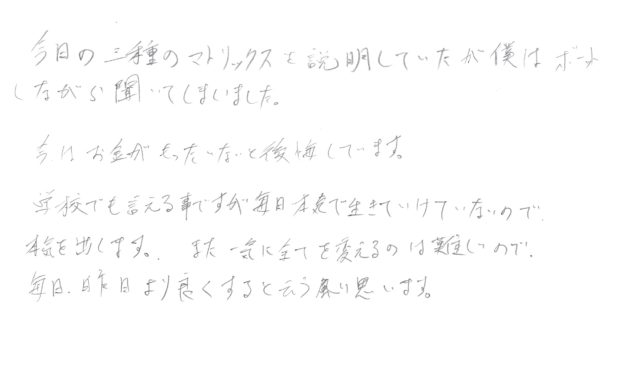 今日の三種のマトリックスを説明していたが僕はボーッと
しながら聞いてしまいました。
今はお金がもったいないと後悔しています。
学校でも言える事ですが毎日本気で生きていけていないので、
本気を出します。また一気に全てを変えるのは難しいので、
毎日、昨日より良くすると云う 思います。